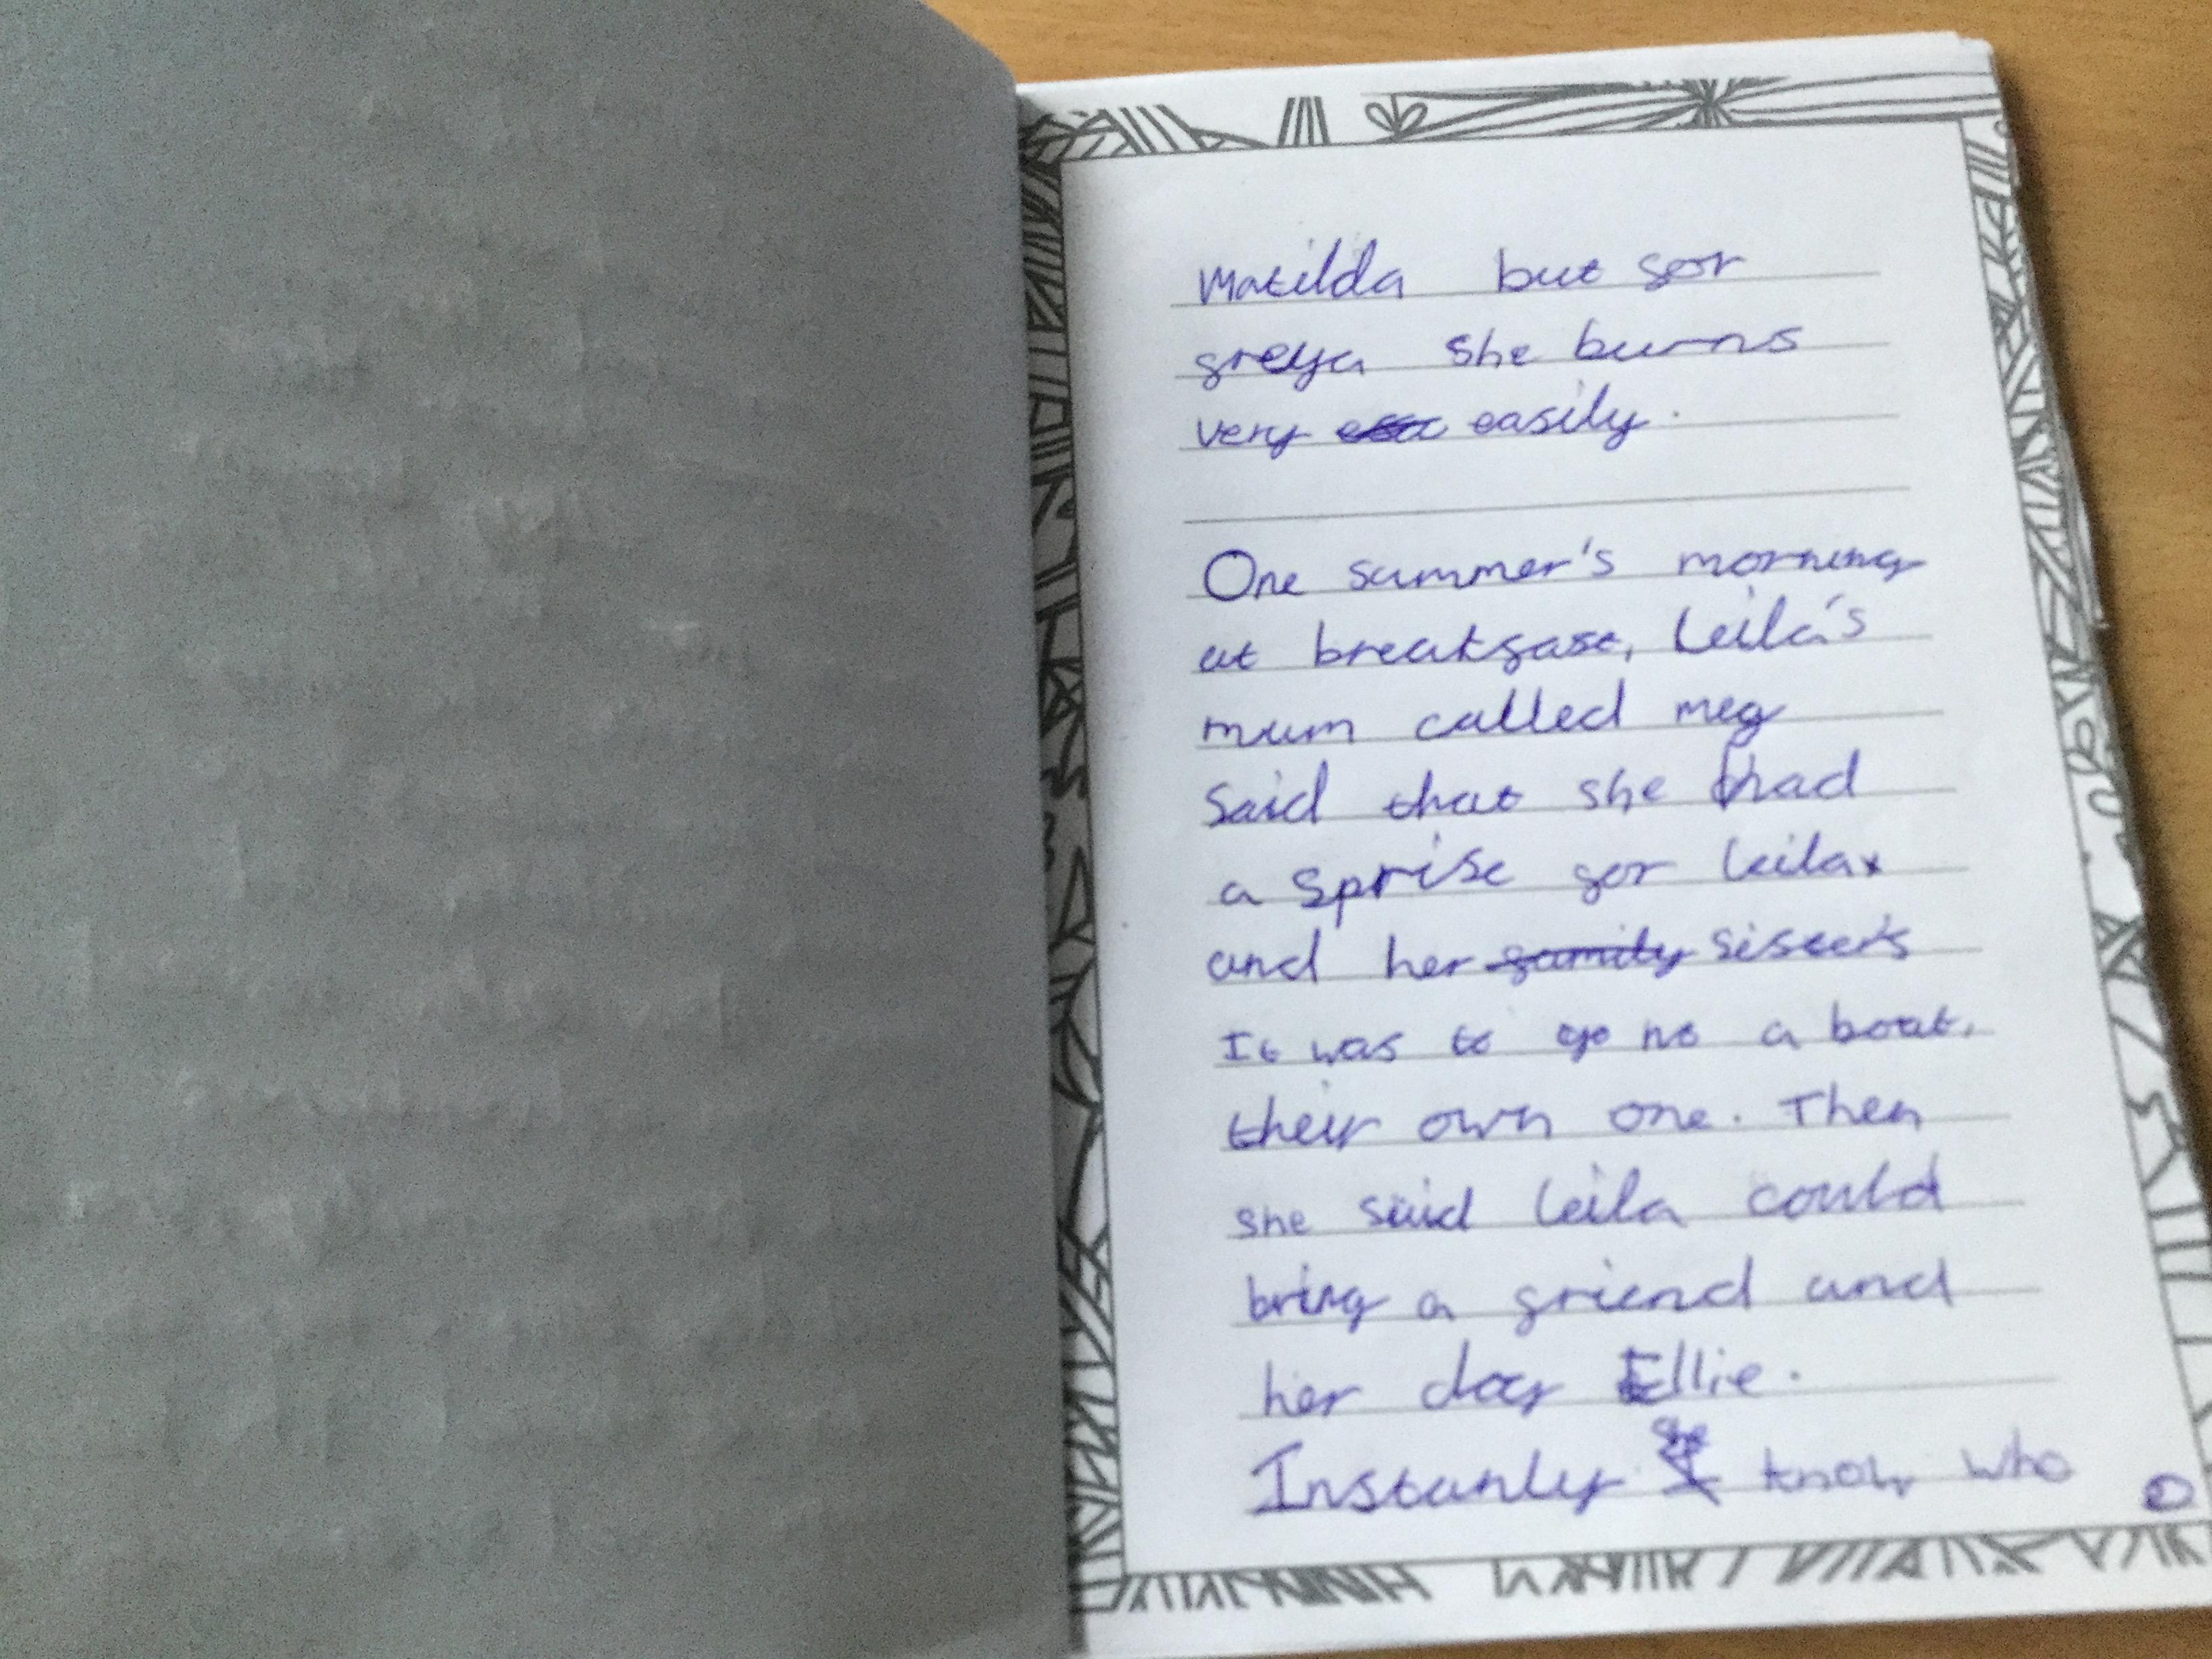 Matilda but for
freya she burns
very easily.
One summer's morning
at breakfast, Leila's
mum called meg
Said that she had
a Sprise for Leila
and her family sisters
It was to go no a boat.
their own one. Then
she said Leila could
bring a friend and
her dog Ellie.
Instanly she know who